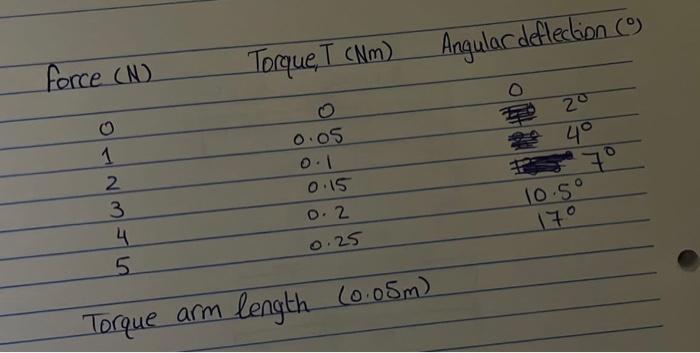 Force (N) Torque, T (Nm) Angular deflection (°)
0 0 0
1 0.05 2°
2 0.1 4°
3 0.15 7°
4 0.2 10.5°
5 0.25 17°
Torque arm length (0.05m)